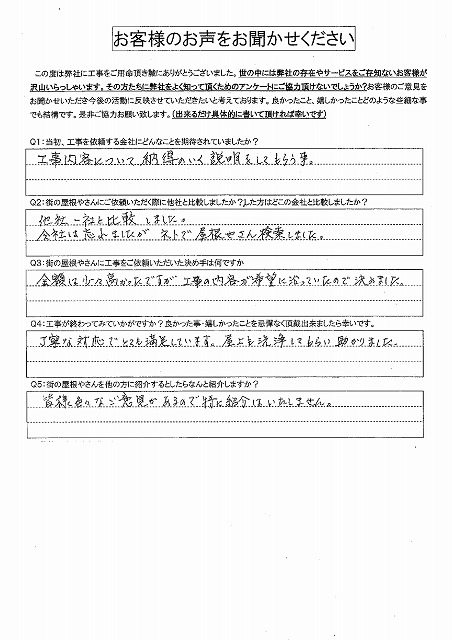 お客様のお声をお聞かせください
この度は弊社に工事をご用命頂き誠にありがとうございました。世の中には弊社の存在やサービスをご存知ないお客様が
沢山いらっしゃいます。その方たちに弊社をよく知って頂くためのアンケートにご協力頂けないでしょうか?お客様のご意見を
お聞かせいただき今後の活動に反映させていただきたいと考えております。良かったこと、嬉しかったことどのような些細な事
でも結構です。是非ご協力お願い致します。(出来るだけ具体的に書いて頂ければ幸いです)
Q1:当初、工事を依頼する会社にどんなことを期待されていましたか?
工事内容について納得のいく説明をしてもらう事。
Q2:街の屋根やさんにご依頼いただく際に他社と比較しましたか?した方はどこの会社と比較しましたか?
他社一社と比較しました。
会社は忘れましたがネットで屋根やさん検索しました。
Q3:街の屋根やさんに工事をご依頼いただいた決め手は何ですか
金額は少々高かったですが工事の内容が希望に沿っていたので決めました。
Q4:工事が終わってみていかがですか?良かった事・嬉しかったことを忌憚なく頂戴出来ましたら幸いです。
丁寧な対応でとても満足しています。屋上も洗浄してもらい助かりました。
Q5:街の屋根やさんを他の方に紹介するとしたらなんと紹介しますか?
皆様色々なご意見があるので特に紹介はいたしません。